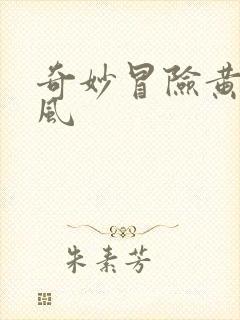 奇妙冒險黃
風
朱素芳